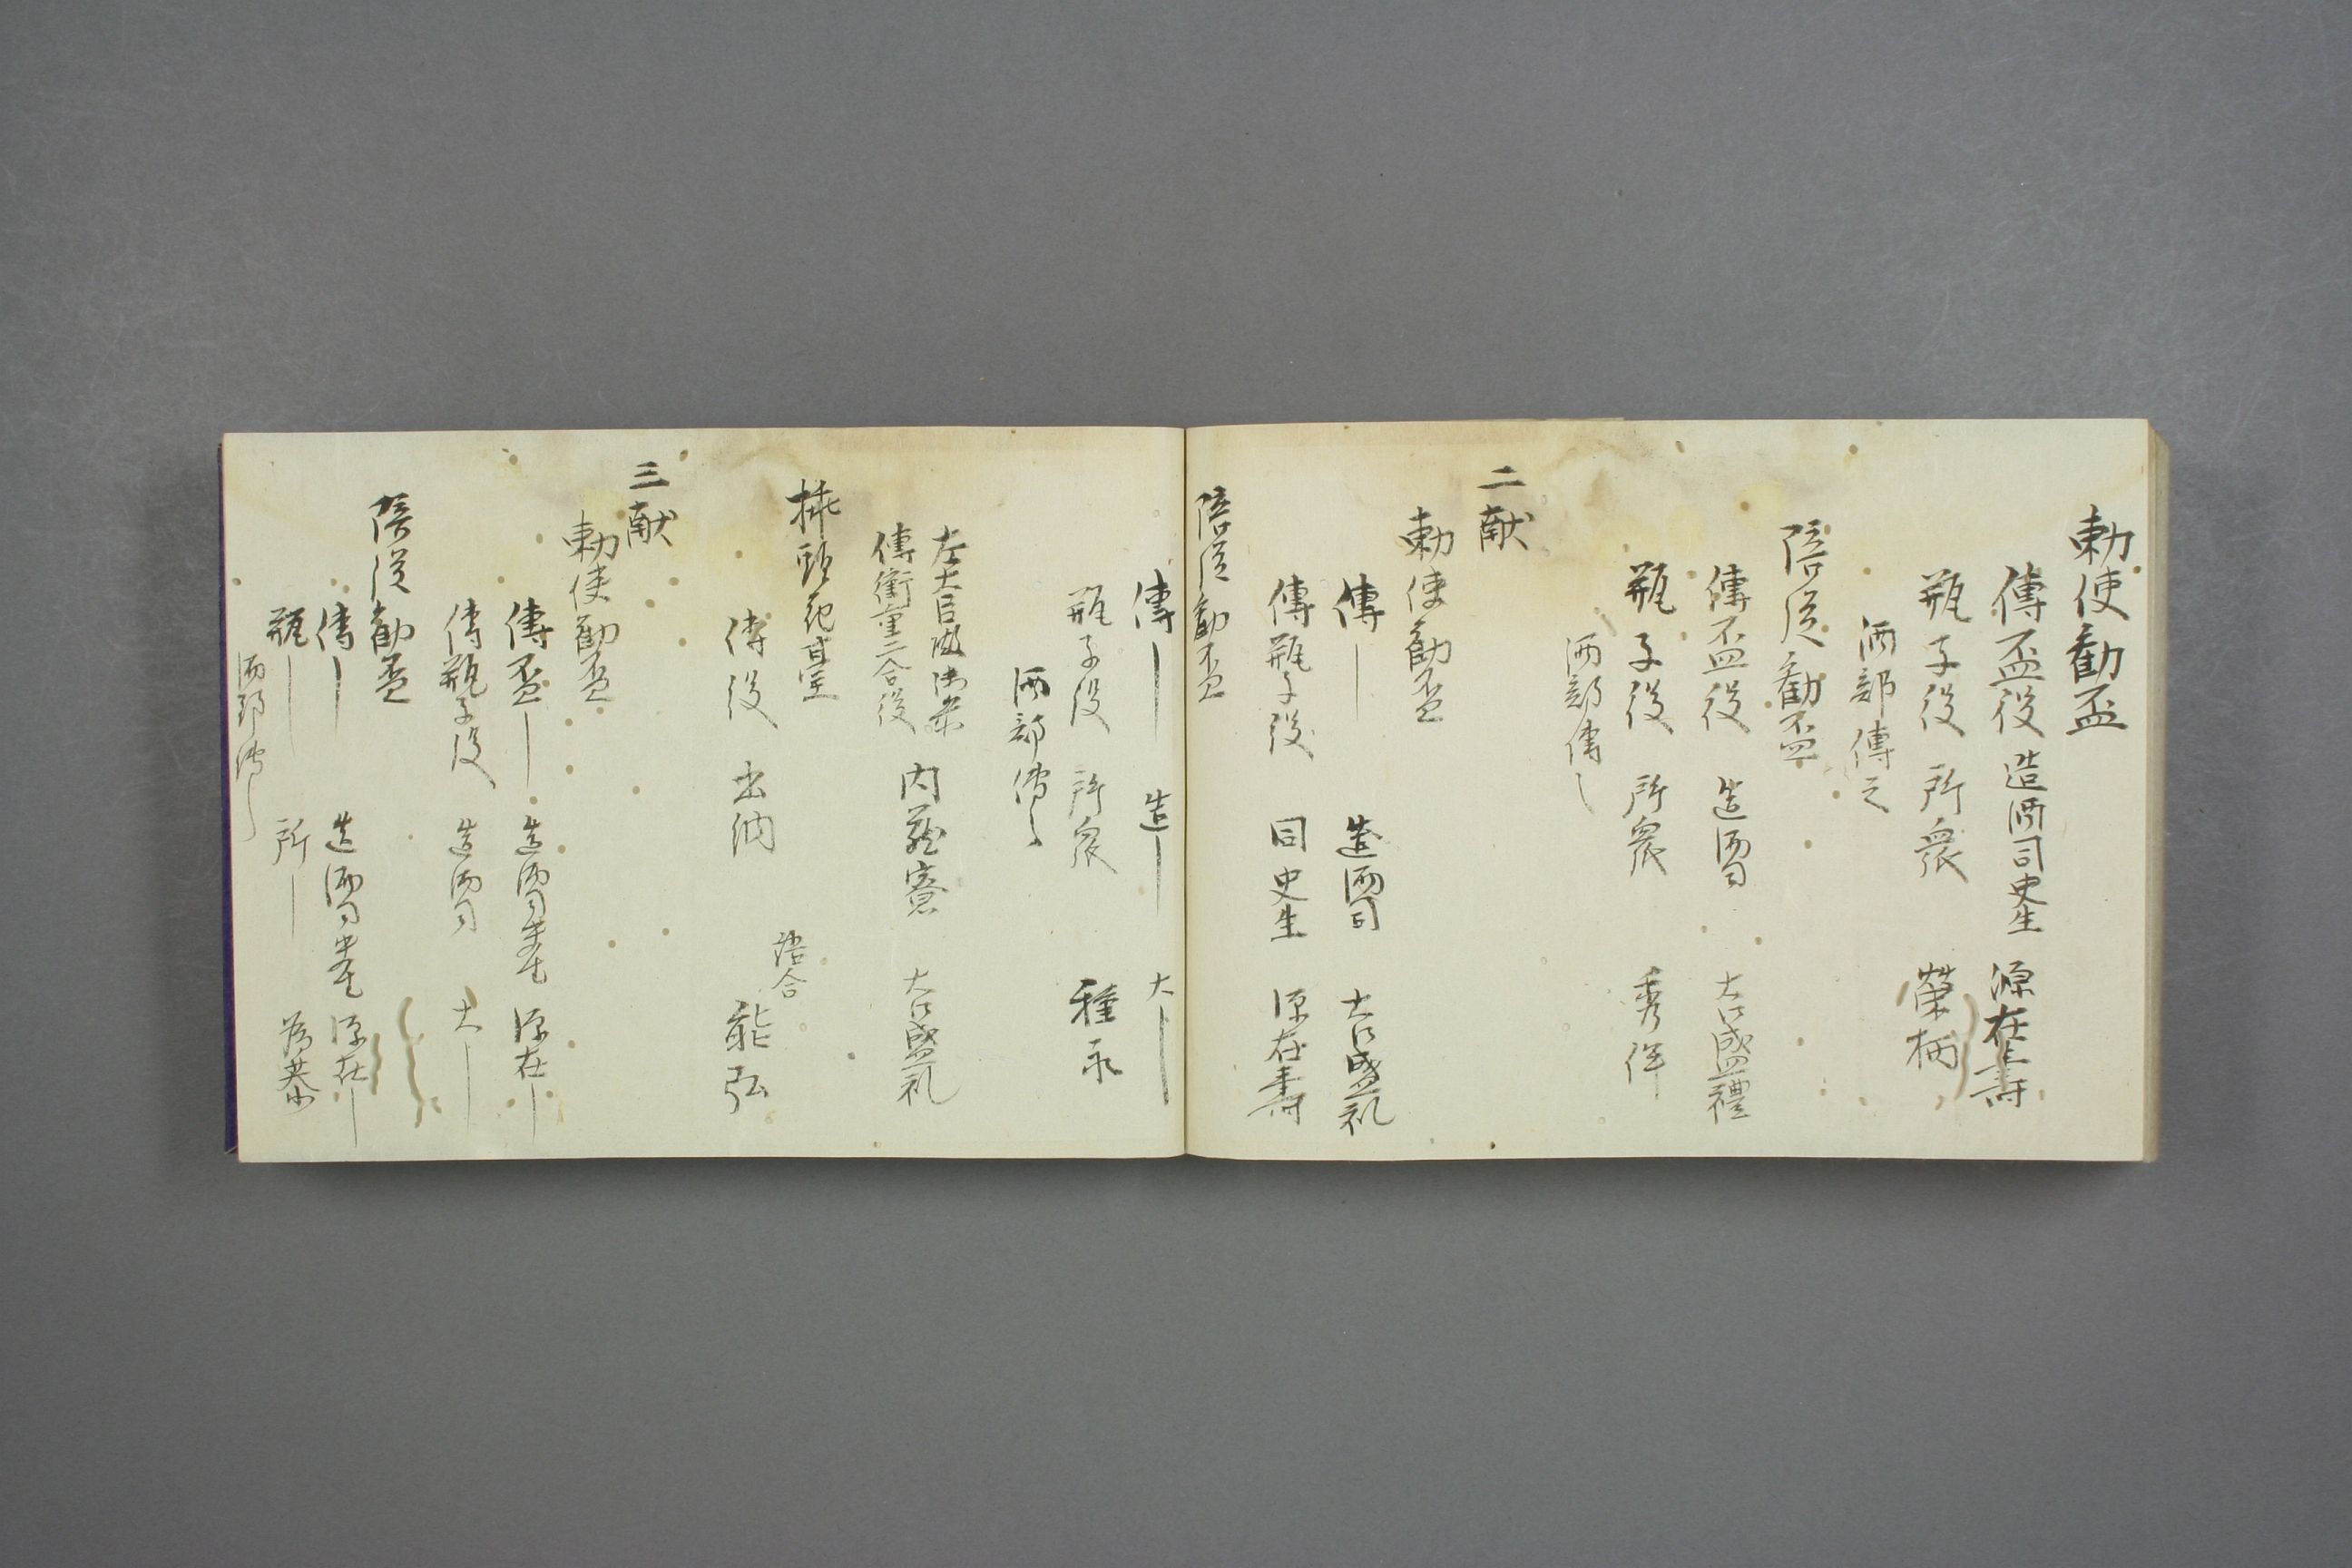 勅使勧盃
傳盃役 造酒司史生 源在壽
瓶子役 所衆 榮柄
酒部傳之
陪従勧盃
傳盃役 造酒司 大江盛禮
瓶子役 所衆 秀伴
酒部傳〻
二献
勅使勧盃
傳｜ 造酒司 大江盛礼
傳瓶子役 同史生 源在壽
陪従勧盃
傳｜ 造｜ 大｜
瓶子役 所衆 種永
酒部傳〻
左大臣
傳衝重二合役 内蔵寮 大江盛礼
挿頭花臺
傳役 出納 能弘
三献
勅使勧盃
傳盃｜ 造酒司史生 源在｜
傳瓶子役 造酒司 大｜
陪従勧盃
傳｜ 造酒司史生 源在｜
瓶｜ 所｜ 為恭
酒部傳〻